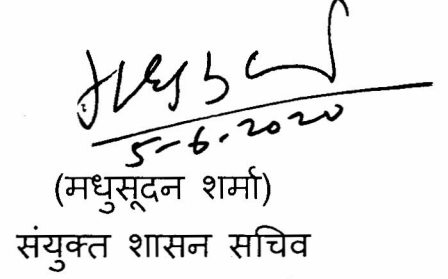 5-6-2020
(मधुसूदन शर्मा)
संयुक्त शासन सचिव